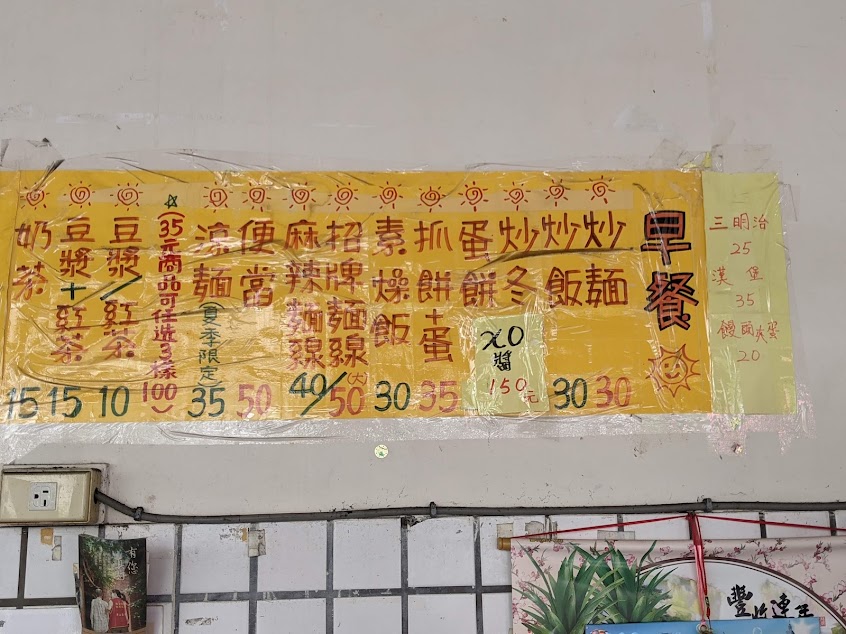 三明治
25
漢堡
35
饅頭夾蛋
20
早餐
炒麵 30
炒飯 30
炒冬
蛋餅
XO醬
150元
抓餅+蛋 35
素燥飯 30
招牌麵線
麻辣麵線
40/50(大)
便當 50
涼麵(夏季限定) 35
☆(35元商品可任選3樣100)
豆漿/紅茶 10
豆漿+紅茶 15
奶茶 15
有您
豐